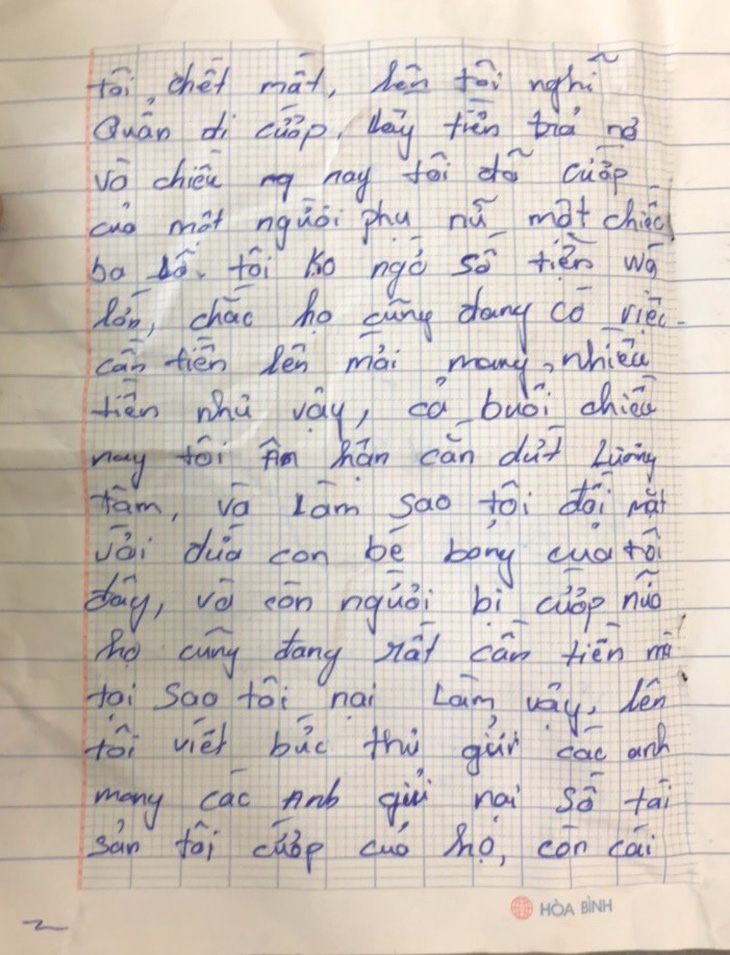 tôi, chết mất, lên tôi nghĩ
Quẩn đi cướp, lấy tiền trả nợ
và chiều ng nay tôi đã cướp
của một người phụ nữ một chiếc
ba lô. tôi ko ngờ số tiền wá
lớn, chắc họ cũng đang có việc
cần tiền lên mới mang, nhiều
tiền như vậy, cả buổi chiều
nay tôi Ân hận cắn dứt Lương
tâm, và Làm sao tôi đối mặt
với đứa con bé bỏng của tôi
đây, và còn người bị cướp nữa
họ cũng đang rất cần tiền mà
tại sao tôi nại Làm vậy, lên
tôi viết bức thư gửi các anh
mong các Anh gửi nại số tài
sản tôi cướp của họ, còn cái
HÒA BÌNH
2